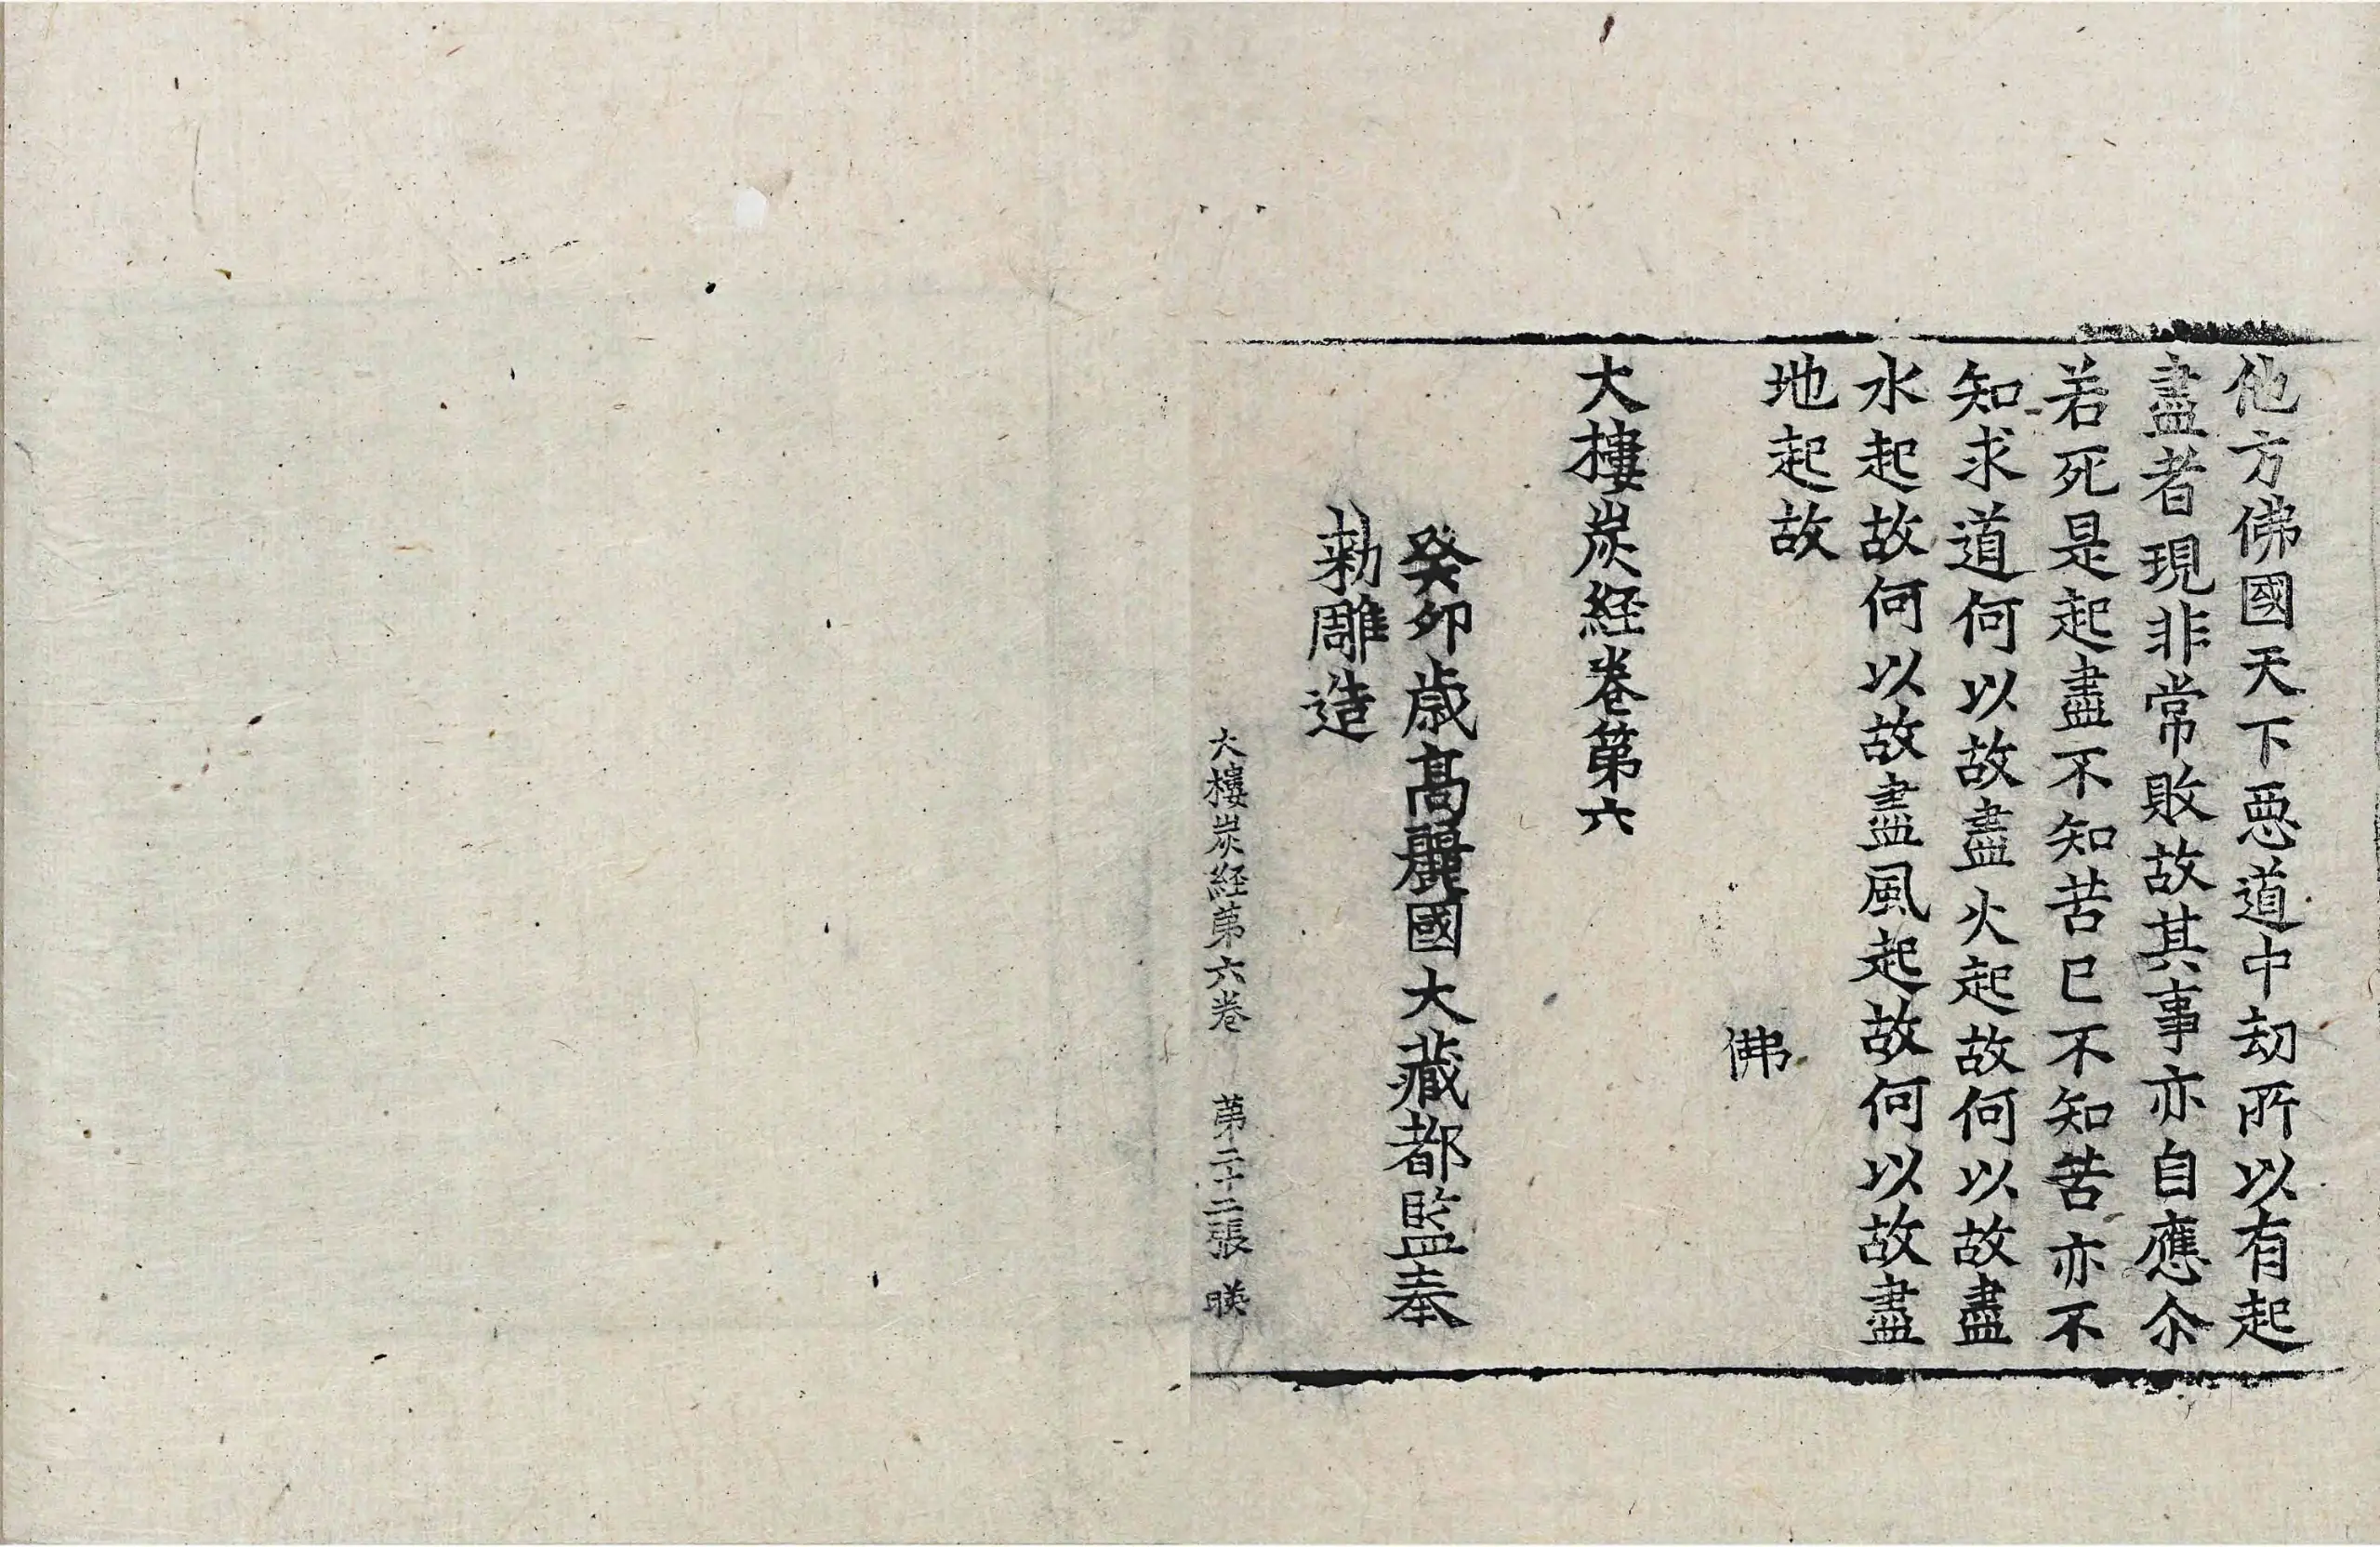 他方佛國天下惡道中劫所以有起
盡者現非常敗故其事亦自應尒
若死是起盡不知苦已不知苦亦不
知求道何以故盡火起故何以故盡
水起故何以故盡風起故何以故盡
地起故
佛
大樓炭経卷第六
癸卯歳高麗國大藏都監奉
勅雕造
大樓炭経第六卷 第二十二張 暎